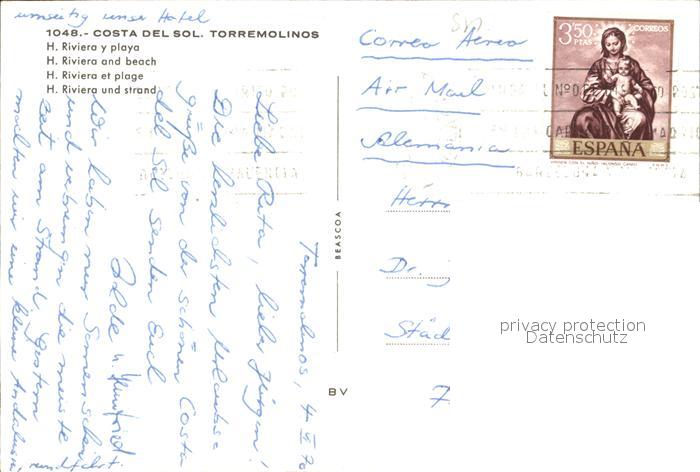 umseitig unser Hotel
1048.- COSTA DEL SOL. TORREMOLINOS
H. Riviera y playa
H. Riviera and beach
H. Riviera et plage
H. Riviera und strand
Torremolinos, 4.
Liebe Ruta, lieber Jürgen!
Die herzlichsten Urlaubs-
grüße von der schönen Costa
del Sol senden Euch
Wir haben nur Sonnenschein
und verbringen die meiste
Zeit am Strand. Gestern
machten wir eine kleine Andalusien
rundfahrt.
BEASCOA
BV
Correo Aereo
Air Mail
Alemania
Herrn
Dr.
Städ
7
3'50
PTAS
CORREOS
ESPAÑA
VIRGEN CON EL NIÑO (ALONSO CANO)
privacy protection
Datenschutz